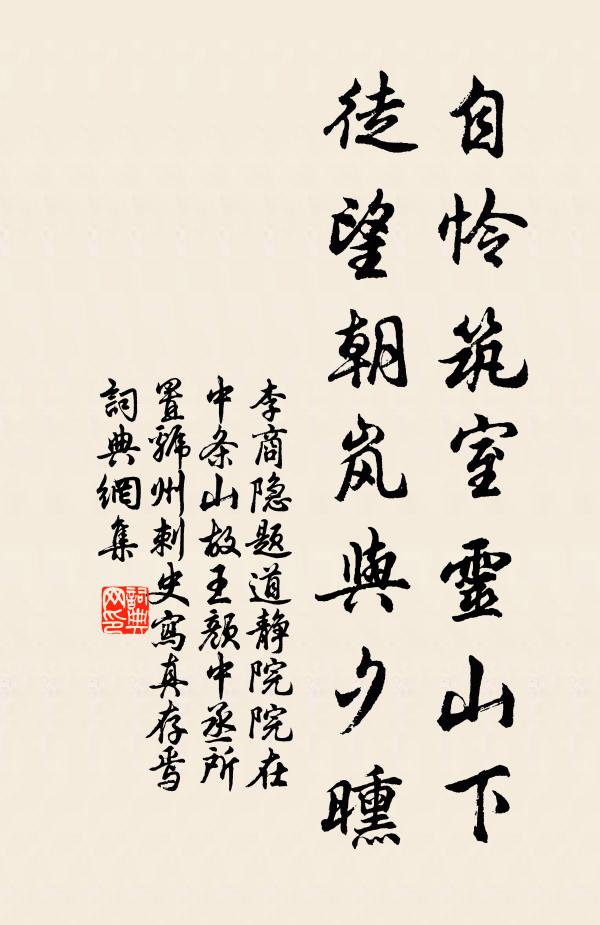 自怜筑室靈山下
徒望朝岚與夕曛
李商隐题道静院院在
中条山故王颜中丞所
置虢州刺史寫真存焉
詞典網集
詞典
网印